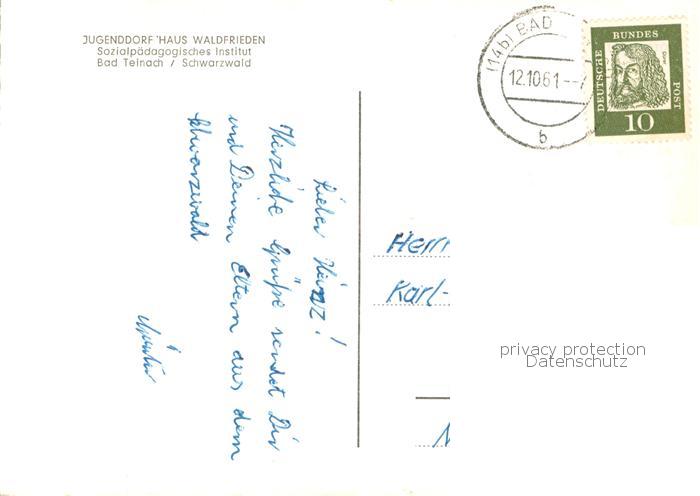 JUGENDDORF 'HAUS WALDFRIEDEN
Sozialpädagogisches Institut
Bad Teinach / Schwarzwald
(14b) BAD
12.10.61
b
DEUTSCHE BUNDES POST
Dürer
10
Lieber Heinz!
Herzliche Grüße sendet Dir
und Deinen Eltern aus dem
Schwarzwald
Herrn
Karl-
privacy protection
Datenschutz